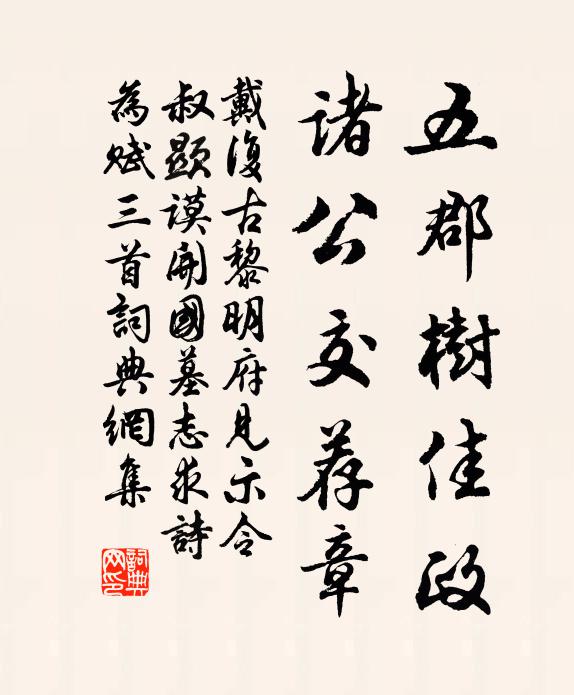 五郡樹佳政
諸公交荐章
戴復古黎明府見示令
叔顯謨開國墓志求詩
為賦三首詞典網集
詞典
网印